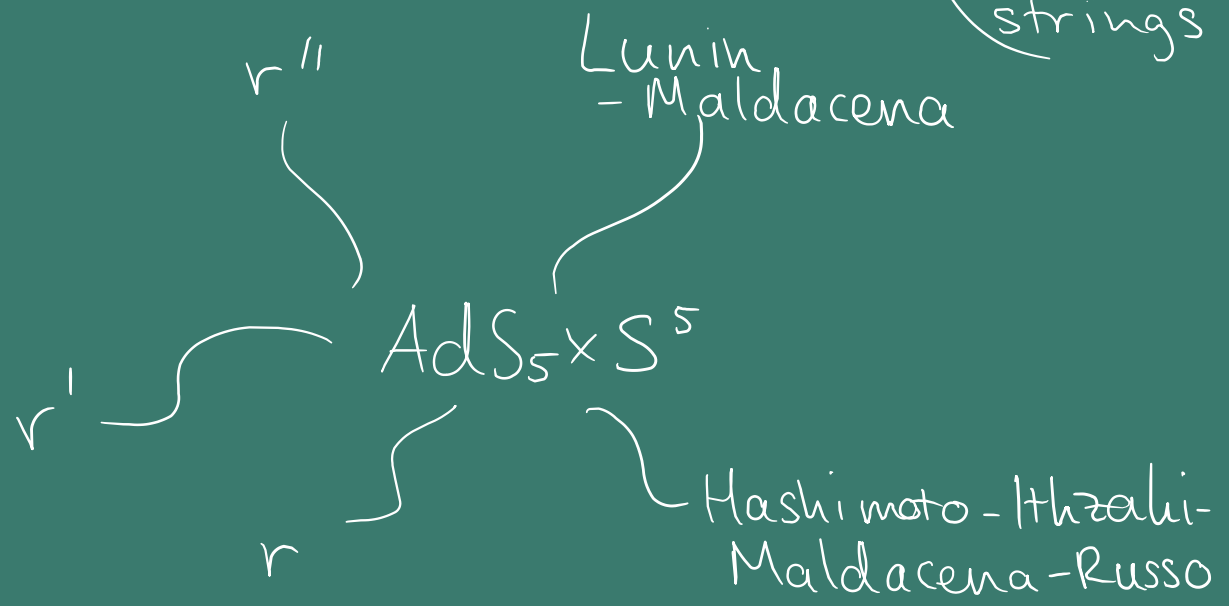 strings
r''
Lunin
- Maldacena
AdS₅×S⁵
r'
Hashimoto-Ithzaki-
Maldacena-Russo
r